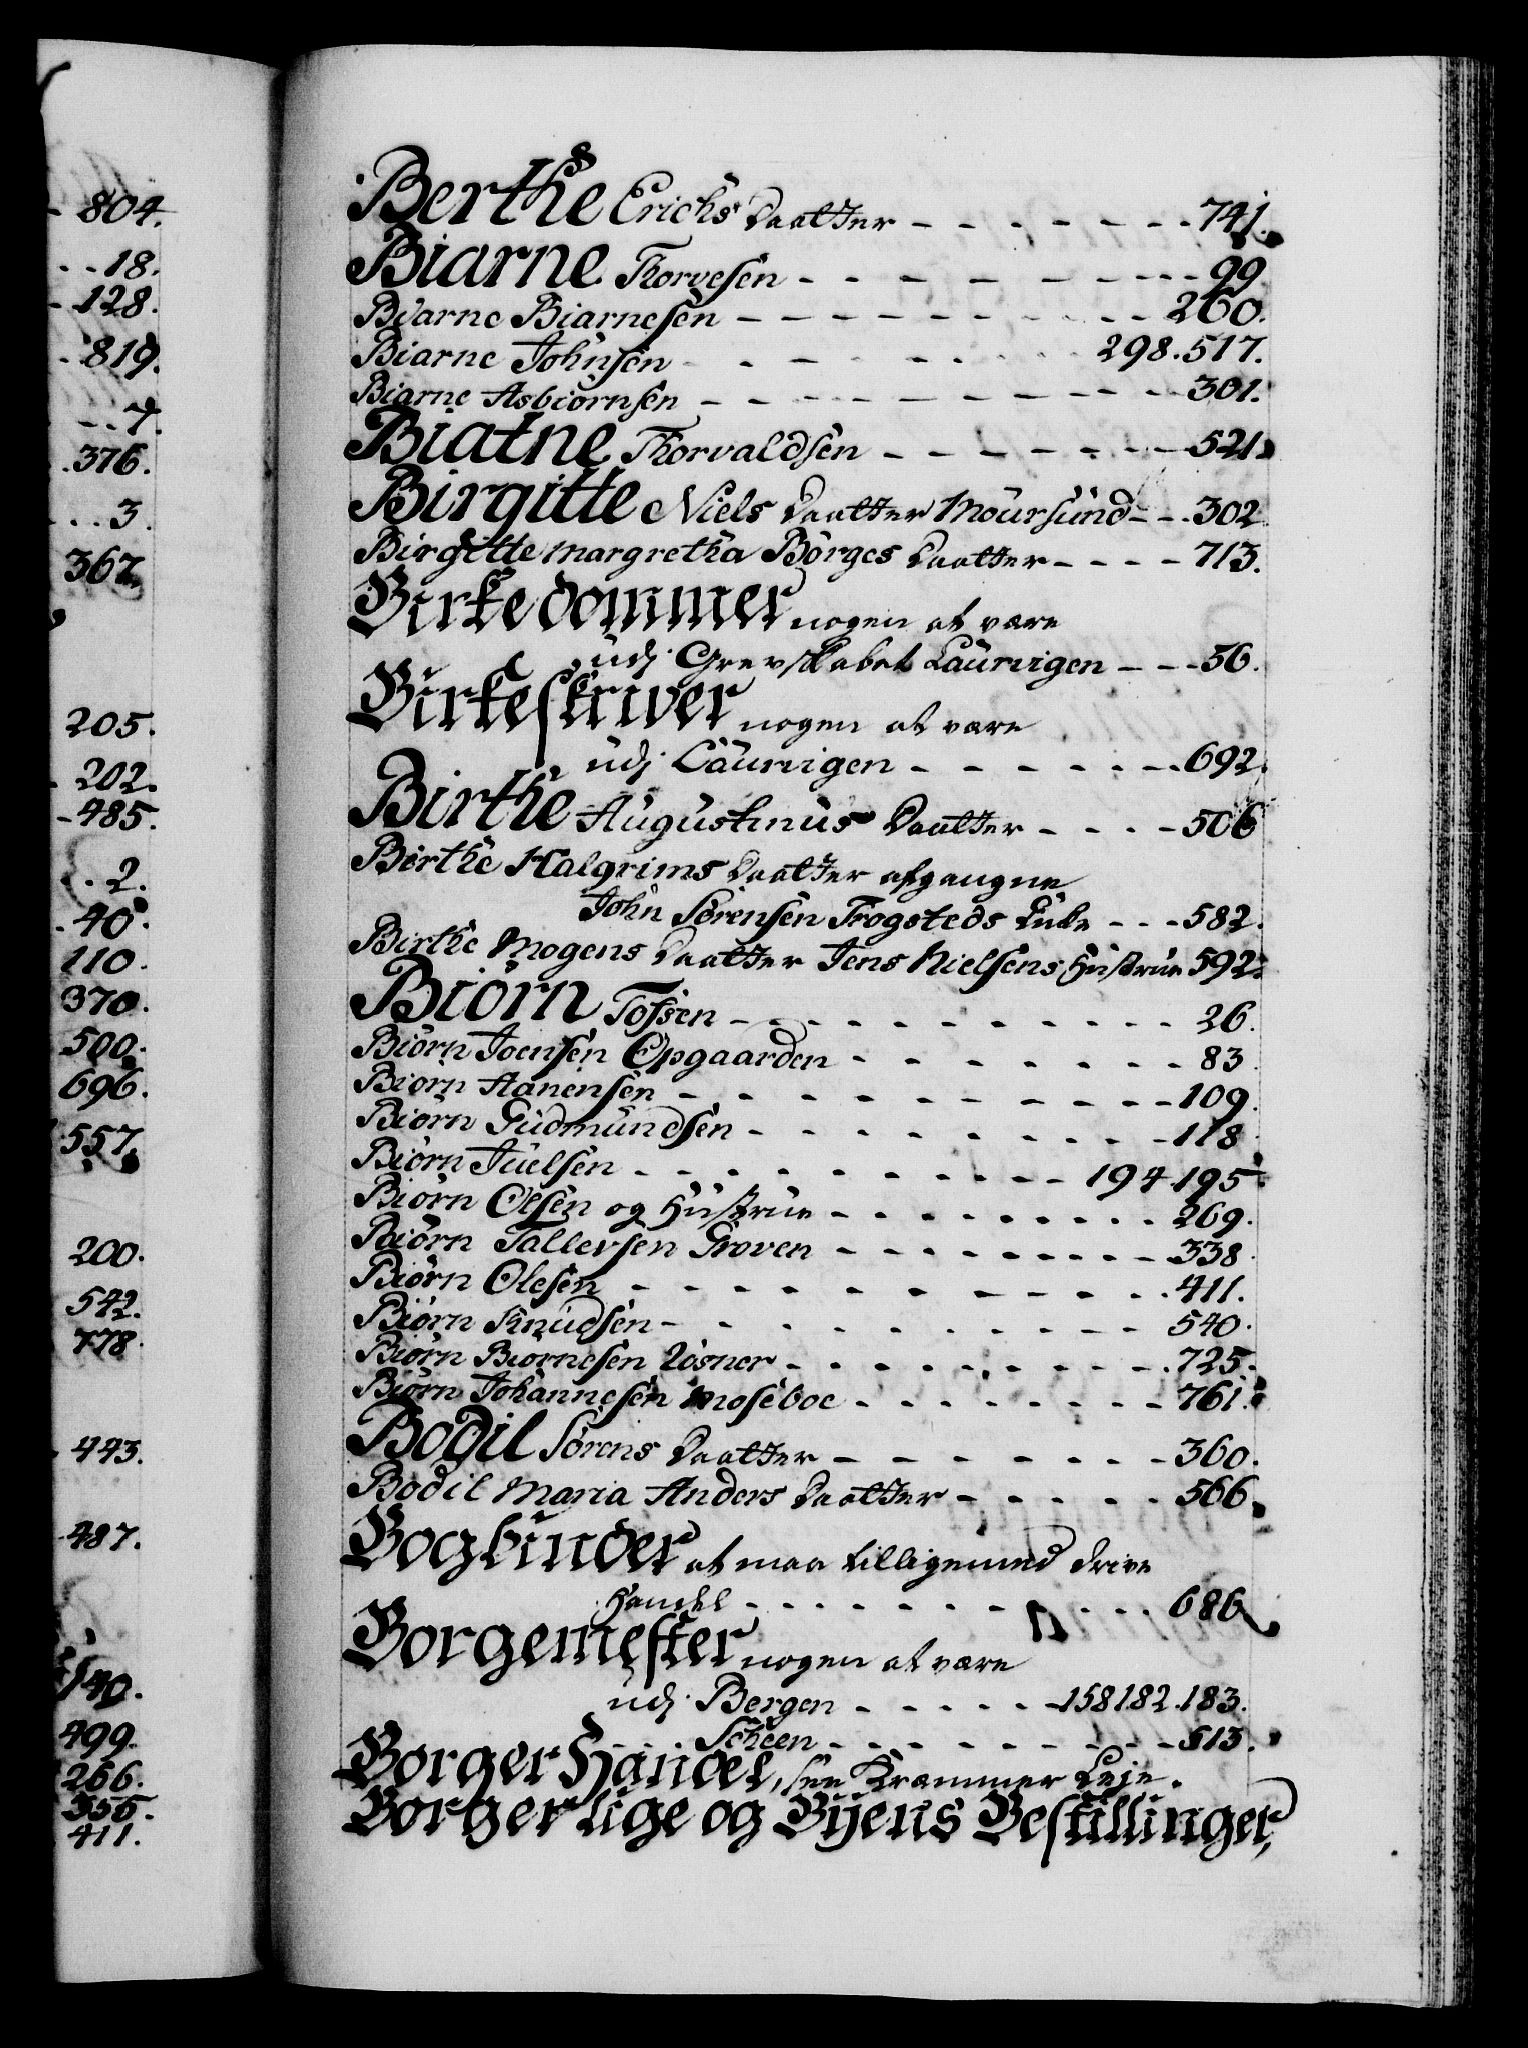 804.
18.
128.
819.
7.
376.
3.
367.
205.
202.
485.
2.
40.
110.
370.
500.
696.
557.
200.
542.
778.
443.
487.
140.
499.
266.
356.
411.
Berthe Erichs Daatter - - - - - - - 741.
Biarne Thorvesen - - - - - - - - - 99.
Biarne Biarnesen - - - - - - - - - - 260.
Biarne Johnsen - - - - - - - 298. 517.
Biarne Asbiørnsen - - - - - - - - - 301.
Biatne Thorvaldsen - - - - - - - 521.
Birgitte Niels Daatter Moursund - - - 302.
Birgitte Margretha Børges Daatter - - - - 713.
Birkedommer nogen at være
udj Grevskabet Laurvigen - - - 56.
Birkeskriver nogen at være
udj Laurvigen - - - - - - - 692.
Birthe Augustinus Daatter - - - - 506
Birthe Halgrims Daatter afgangne
John Sørensen Trogsteds Enke - - - 582.
Birthe Mogens Daatter Jens Nielsens Hustrue 592.
Biørn Tossen - - - - - - - - - - 26.
Biørn Joensen Opgaarden - - - - - - - - 83.
Biørn Aanensen - - - - - - - - - - - 109.
Biørn Gudmundsen - - - - - - - - - - 118
Biørn Juelsen - - - - - - - - - - 194 195.
Biørn Olsen og Hustrue - - - - - - - - - 269.
Biørn Tallevsen Groven - - - - - - - - - 338.
Biørn Olesen - - - - - - - - - - - 411.
Biørn Knudsen - - - - - - - - - - 540.
Biørn Biørnesen Løsner - - - - - - - - - 725.
Biørn Johannesen Moseboe - - - - - - - - 761.
Bodil Sørens Daatter - - - - - - - 360.
Bodil Maria Anders Daatter - - - - - - 566.
Bogbinder at maa tilligemed drive
Handel - - - - - - - - - - 686
Borgemester nogen at være
udj Bergen - - - - - 158 182. 183.
- - Scheen - - - - - - - - - 613.
Borger Handel, see Kræmmer Leje.
Borgerlige og Byens Bestillinger,